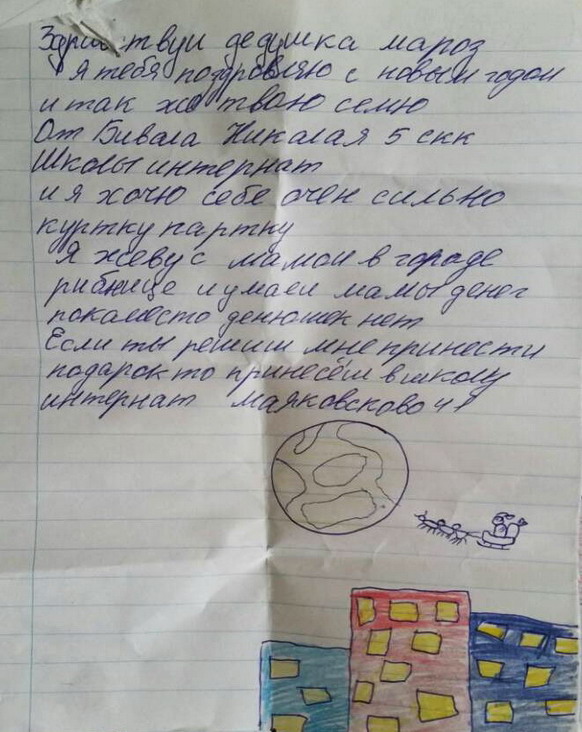 Здравствуи дедушка мароз
Я тебя поздровляю с новым годом
и так же тваю семю
От Бивола Николая 5 скк
Школы интернат
и я хочу себе очен сильно
куртку партку
Я жеву с мамои в городе
рибнице и умаеи мамы денег
покаместо денюшек нет
Если ты решиш мне принести
подарок то принесёш в школу
интернат маяковсково 41